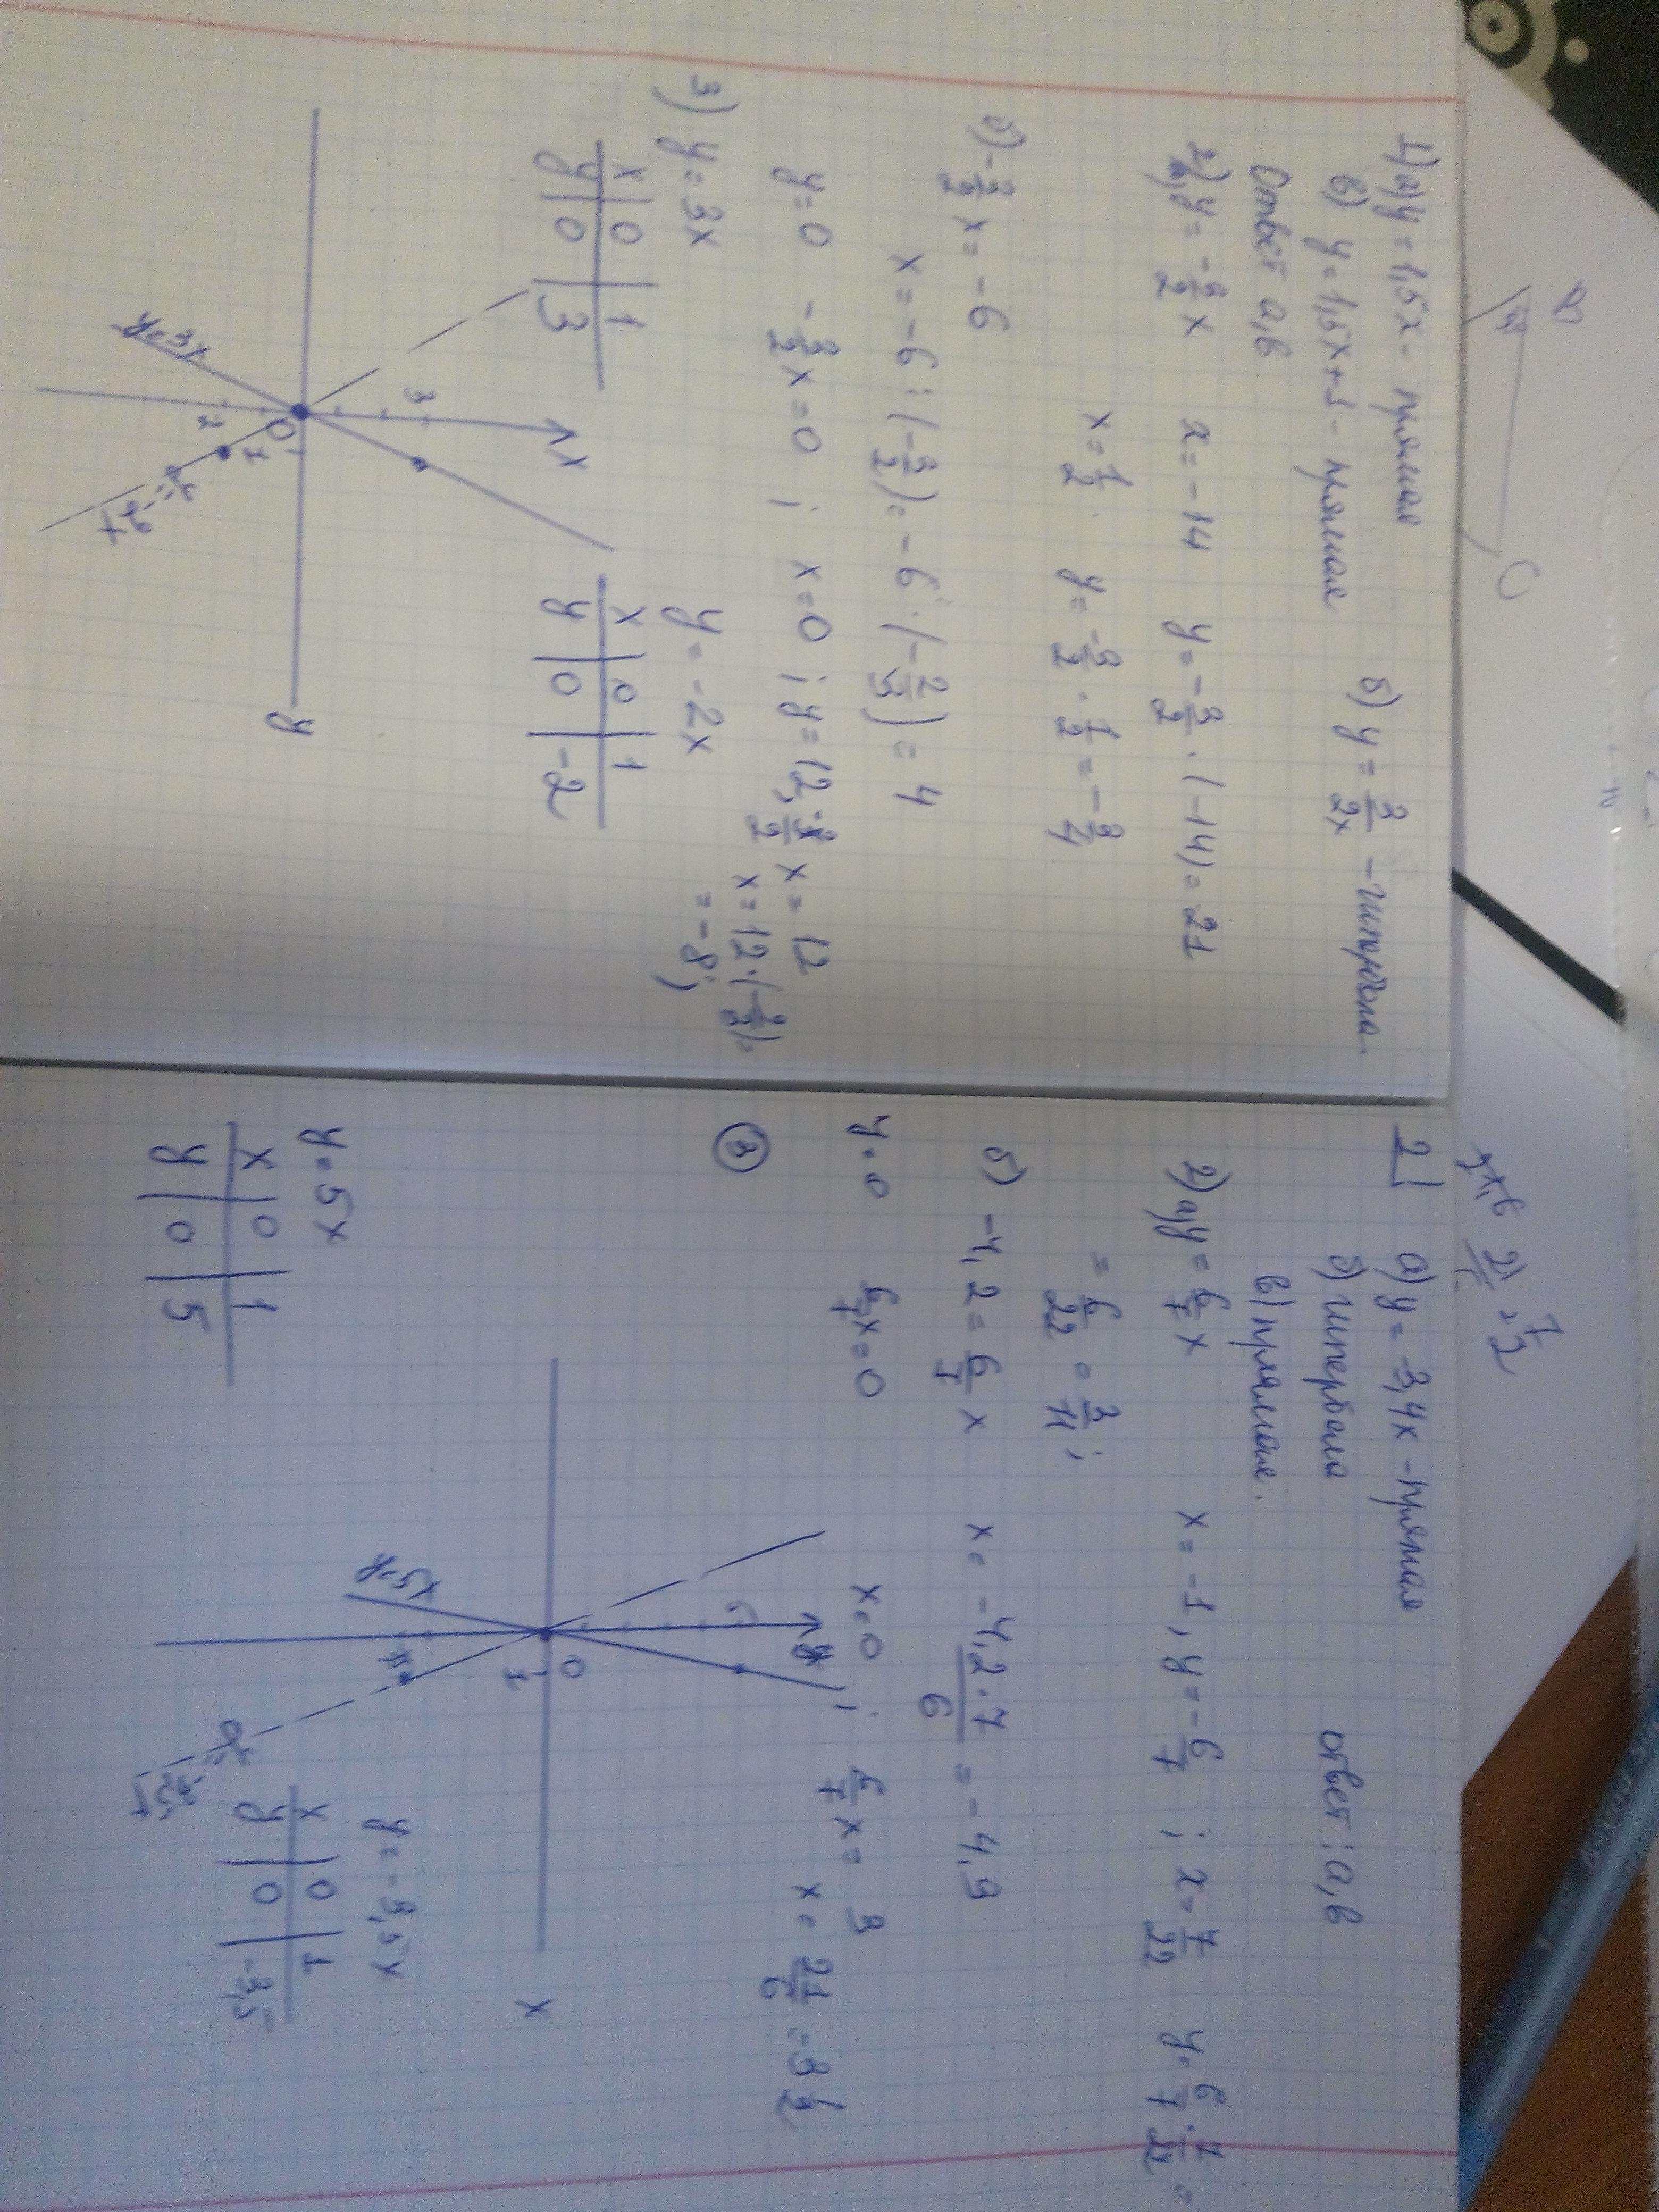 1) а) y = 1,5x - прямая б) y = 3/2x - гипербола.
в) y = 1,5x+1 - прямая
Ответ а, в
2) а) y = -3/2 x x = -14 y = -3/2 · (-14) = 21
x = 1/2. y = -3/2 · 1/2 = -3/4
б) -3/2 x = -6
x = -6 : (-3/2) = -6 · (-2/3) = 4
y = 0 -3/2 x = 0 ; x = 0 ; y = 12, -3/2 x = 12
x = 12 · (-2/3) =
= -8;
3) y = 3x y = -2x
x | 0 | 1 x | 0 | 1
y | 0 | 3 y | 0 | -2
x
3
0
1
2
y=3x
y=-2x
y
2 а) y = -3,4x - прямая ответ: а, в
б) гипербола
в) прямая.
2) а) y = 6/7 x x = -1, y = -6/7 ; x = 7/22 y = 6/7 · 7/22 =
= 6/22 = 3/11 ;
б) -4,2 = 6/7 x x = -4,2·7/6 = -4,9
y = 0 6/7 x = 0 x = 0 ; 6/7 x = 3
x = 21/6 = 3 1/2
3
0
1
x
y=5x
y = 5x y = -3,5x
x | 0 | 1 x | 0 | 1
y | 0 | 5 y | 0 | -3,5